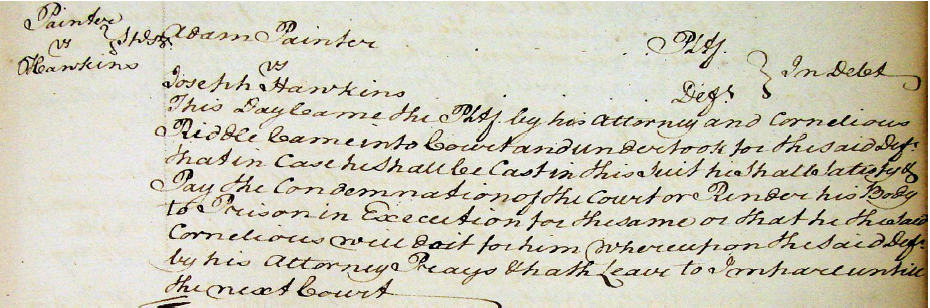 Painter
vs
Hawkins
Adam Painter Pltf.
vs } In Debt
Joseph Hawkins Deft.
This Day Came the Pltf. by his Attorney and Cornelious
Riddle Came into Court and undertook for the said Deft.
that in Case he shall be Cast in this Suit he shall Satisfy &
Pay the Condemnation of the Court or Render his Body
to Prison in Execution for the same or that he the said
Cornelious will do it for him whereupon the said Deft.
by his Attorney Prays & hath Leave to Imparl untill
the next Court